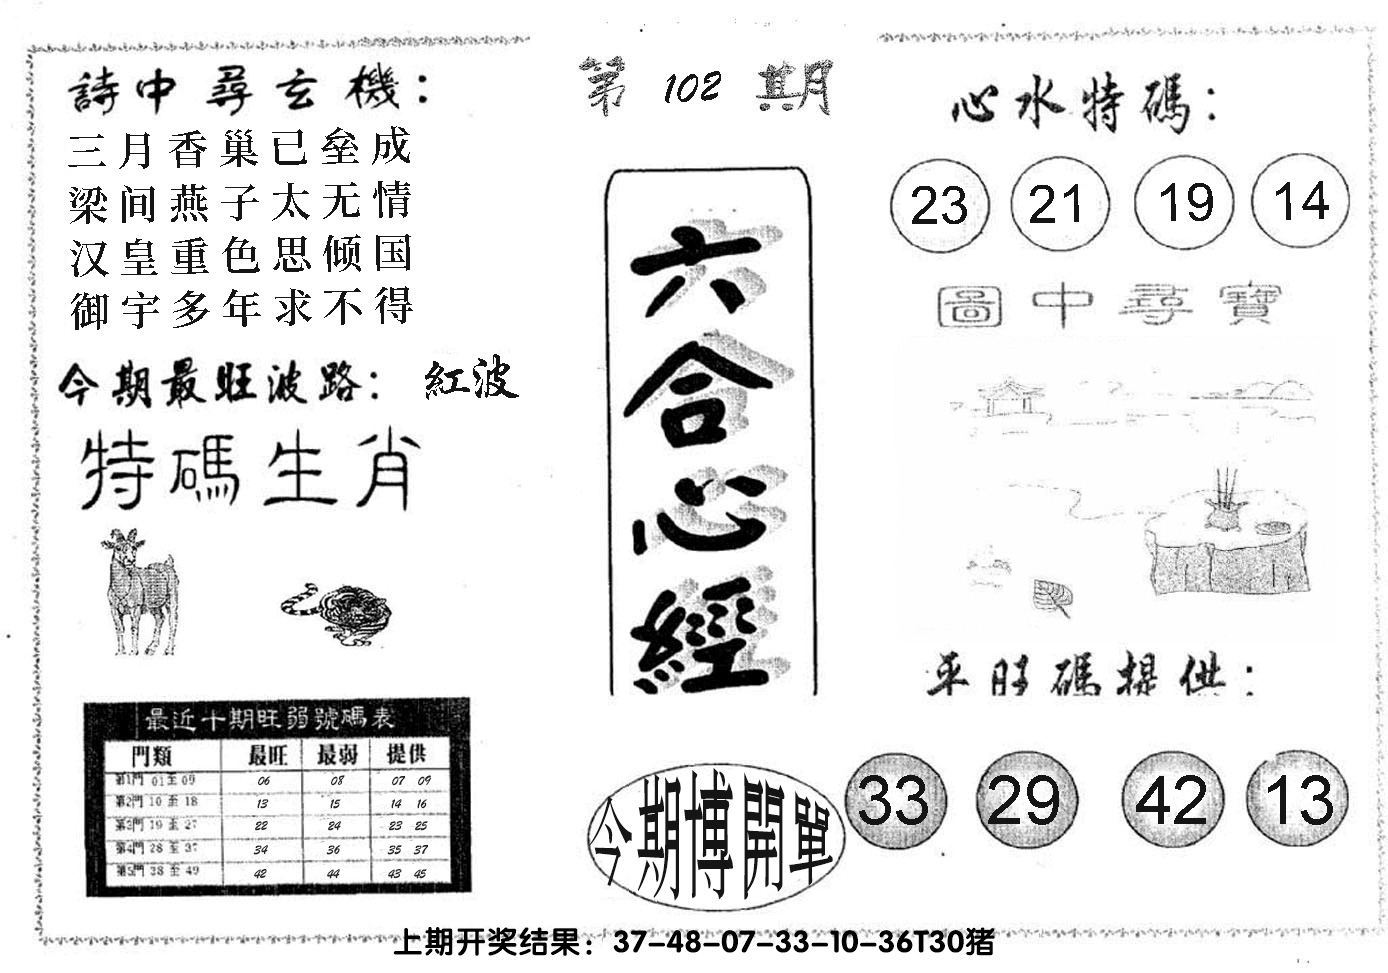 詩中尋玄機：
三月香巢已垒成
梁间燕子太无情
汉皇重色思倾国
御宇多年求不得
今期最旺波路：紅波
特碼生肖
最近十期旺弱號碼表
門類 最旺 最弱 提供
第1門 01至09 06 08 07 09
第2門 10至18 13 15 14 16
第3門 19至27 22 24 23 25
第4門 28至37 34 36 35 37
第5門 38至49 42 44 43 45
第102期
六合心經
今期博開單
心水特碼：
23 21 19 14
圖中尋寶
平旺碼提供：
33 29 42 13
上期开奖结果：37-48-07-33-10-36T30猪